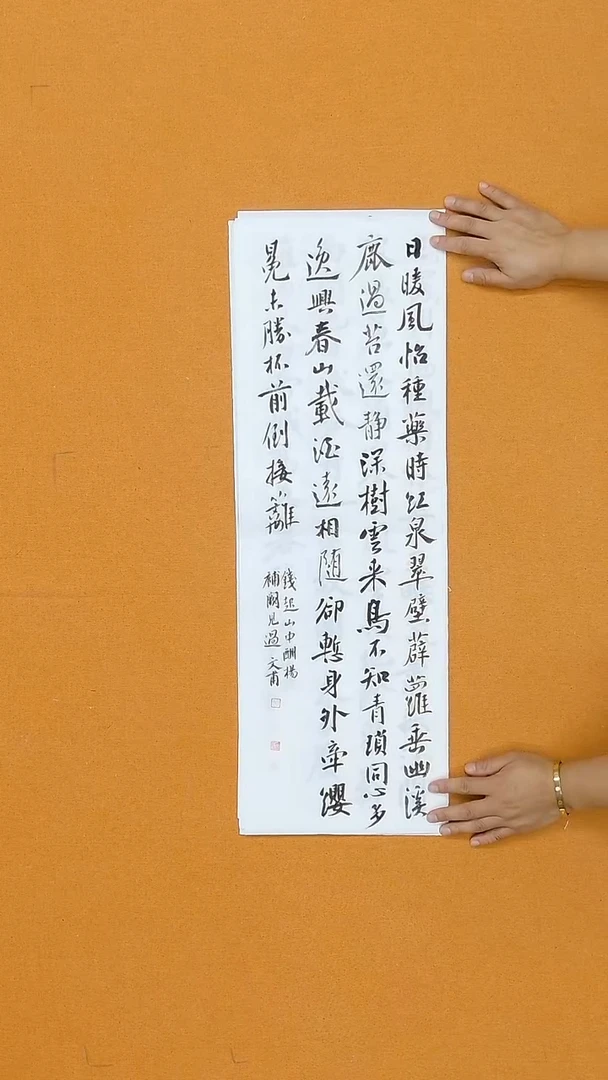 日暖風恬種藥時紅泉翠壁薜蘿垂幽溪
鹿過苔還静深樹雲来鳥不知青瑣同心多
逸興春山載酒遠相随卻慙身外牽纓
冕未勝杯前倒接籬
錢起山中酬楊
補闕見過 文甫